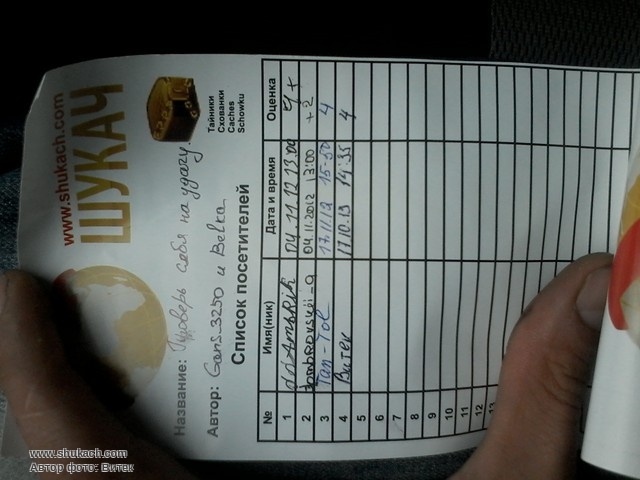 www.shukach.com
ШУКАЧ
Тайники
Схованки
Caches
Schowku
Название: Проверь себя на удачу.
Автор: Gans_3250 и Belka
Список посетителей
№ Имя(ник) Дата и время Оценка
1 04.11.12 13.00 4+
2 04.11.2012 13:00 +2
3 Tan-Tol 17.11.12 15-50 4
4 Витек 17.10.13 14:35 4
5
6
7
8
9
10
11
12
13
www.shukach.com
Автор фото: Витек